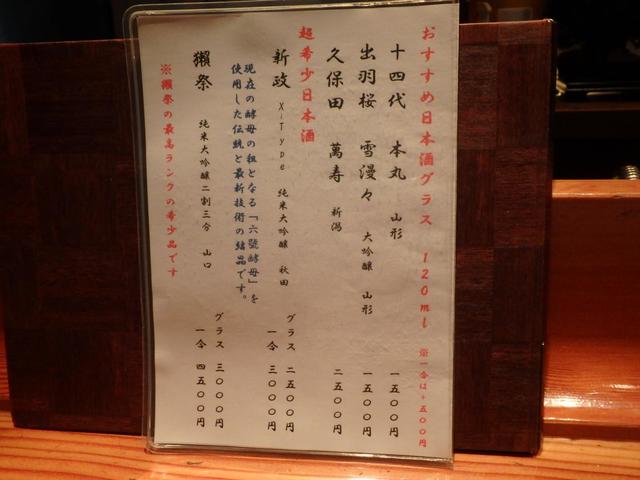 おすすめ日本酒グラス 120ml ※一合は+五〇〇円
十四代 本丸 山形 一五〇〇円
出羽桜 雪漫々 大吟醸 山形 一五〇〇円
久保田 萬寿 新潟 二五〇〇円
超希少日本酒
新政 X-Type 純米大吟醸 秋田 グラス 二五〇〇円
一合 三〇〇〇円
現在の酵母の祖となる「六號酵母」を
使用した伝統と最新技術の結晶です。
獺祭 純米大吟醸二割三分 山口 グラス 三〇〇〇円
一合 四五〇〇円
※獺祭の最高ランクの希少品です